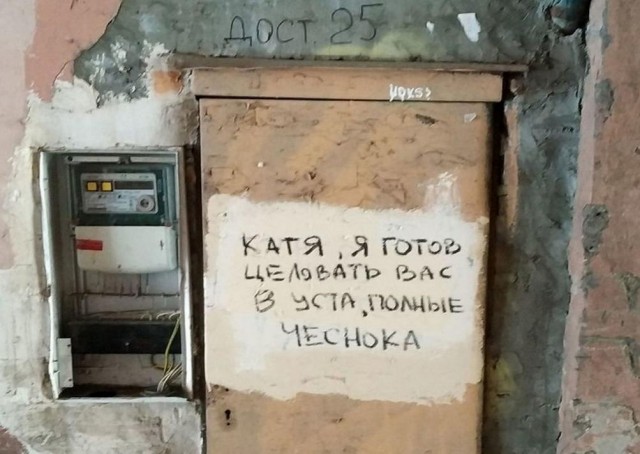 ДОСТ. 25
КАТЯ, Я ГОТОВ
ЦЕЛОВАТЬ ВАС
В УСТА, ПОЛНЫЕ
ЧЕСНОКА